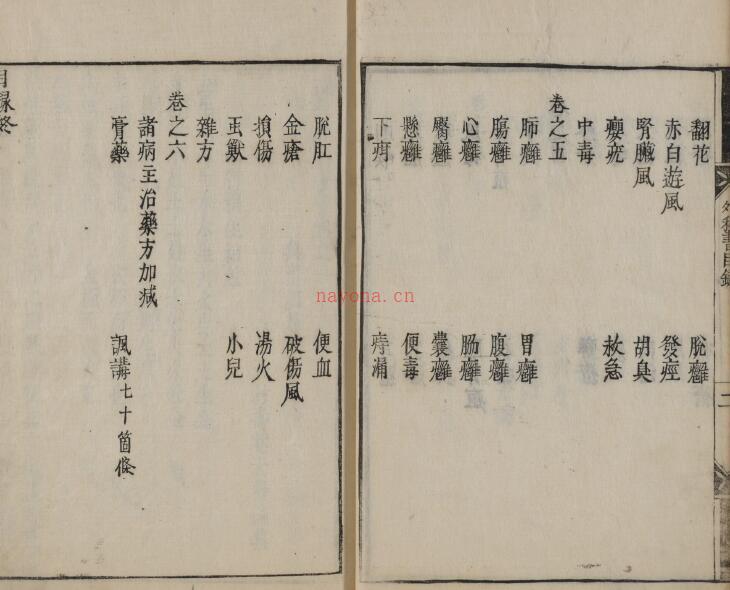 翻花 脫癰
赤白遊風 發痙
腎臟風 胡臭
癭疣 救急
中毒
卷之五
肺癰 胃癰
膓癰 腹癰
心癰 癰
臀癰 囊癰
懸癰 便毒
下疳 痔漏
脫肛 便血
金瘡 破傷風
損傷 湯火
虫獣 小兒
雜方
卷之六
諸病主治藥方加減
膏藥 諷講七十箇條
目録終
二
nayona.cn